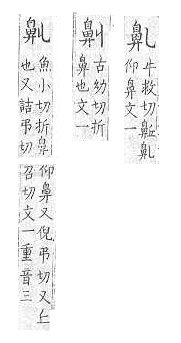 牛救切
仰鼻文一
古幼切折
鼻也文一
魚小切折鼻
也又詰弔切
仰鼻又倪弔切又丘
召切文一重音三